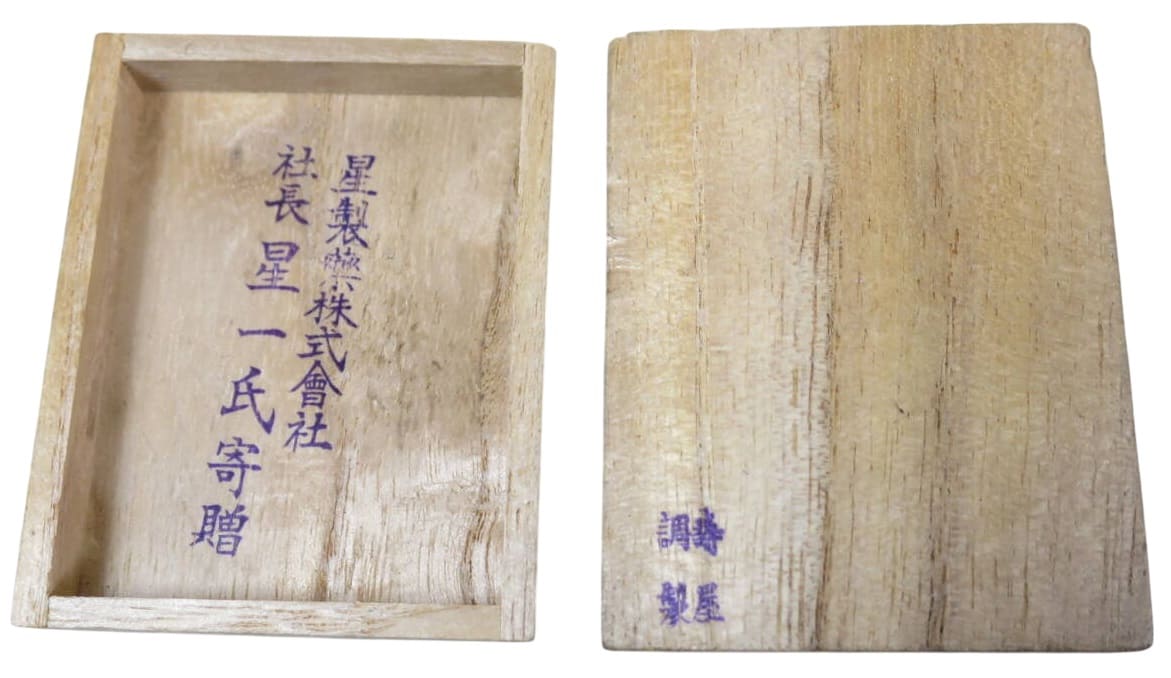 星製藥株式會社
社長星一氏寄贈
壽屋
調製